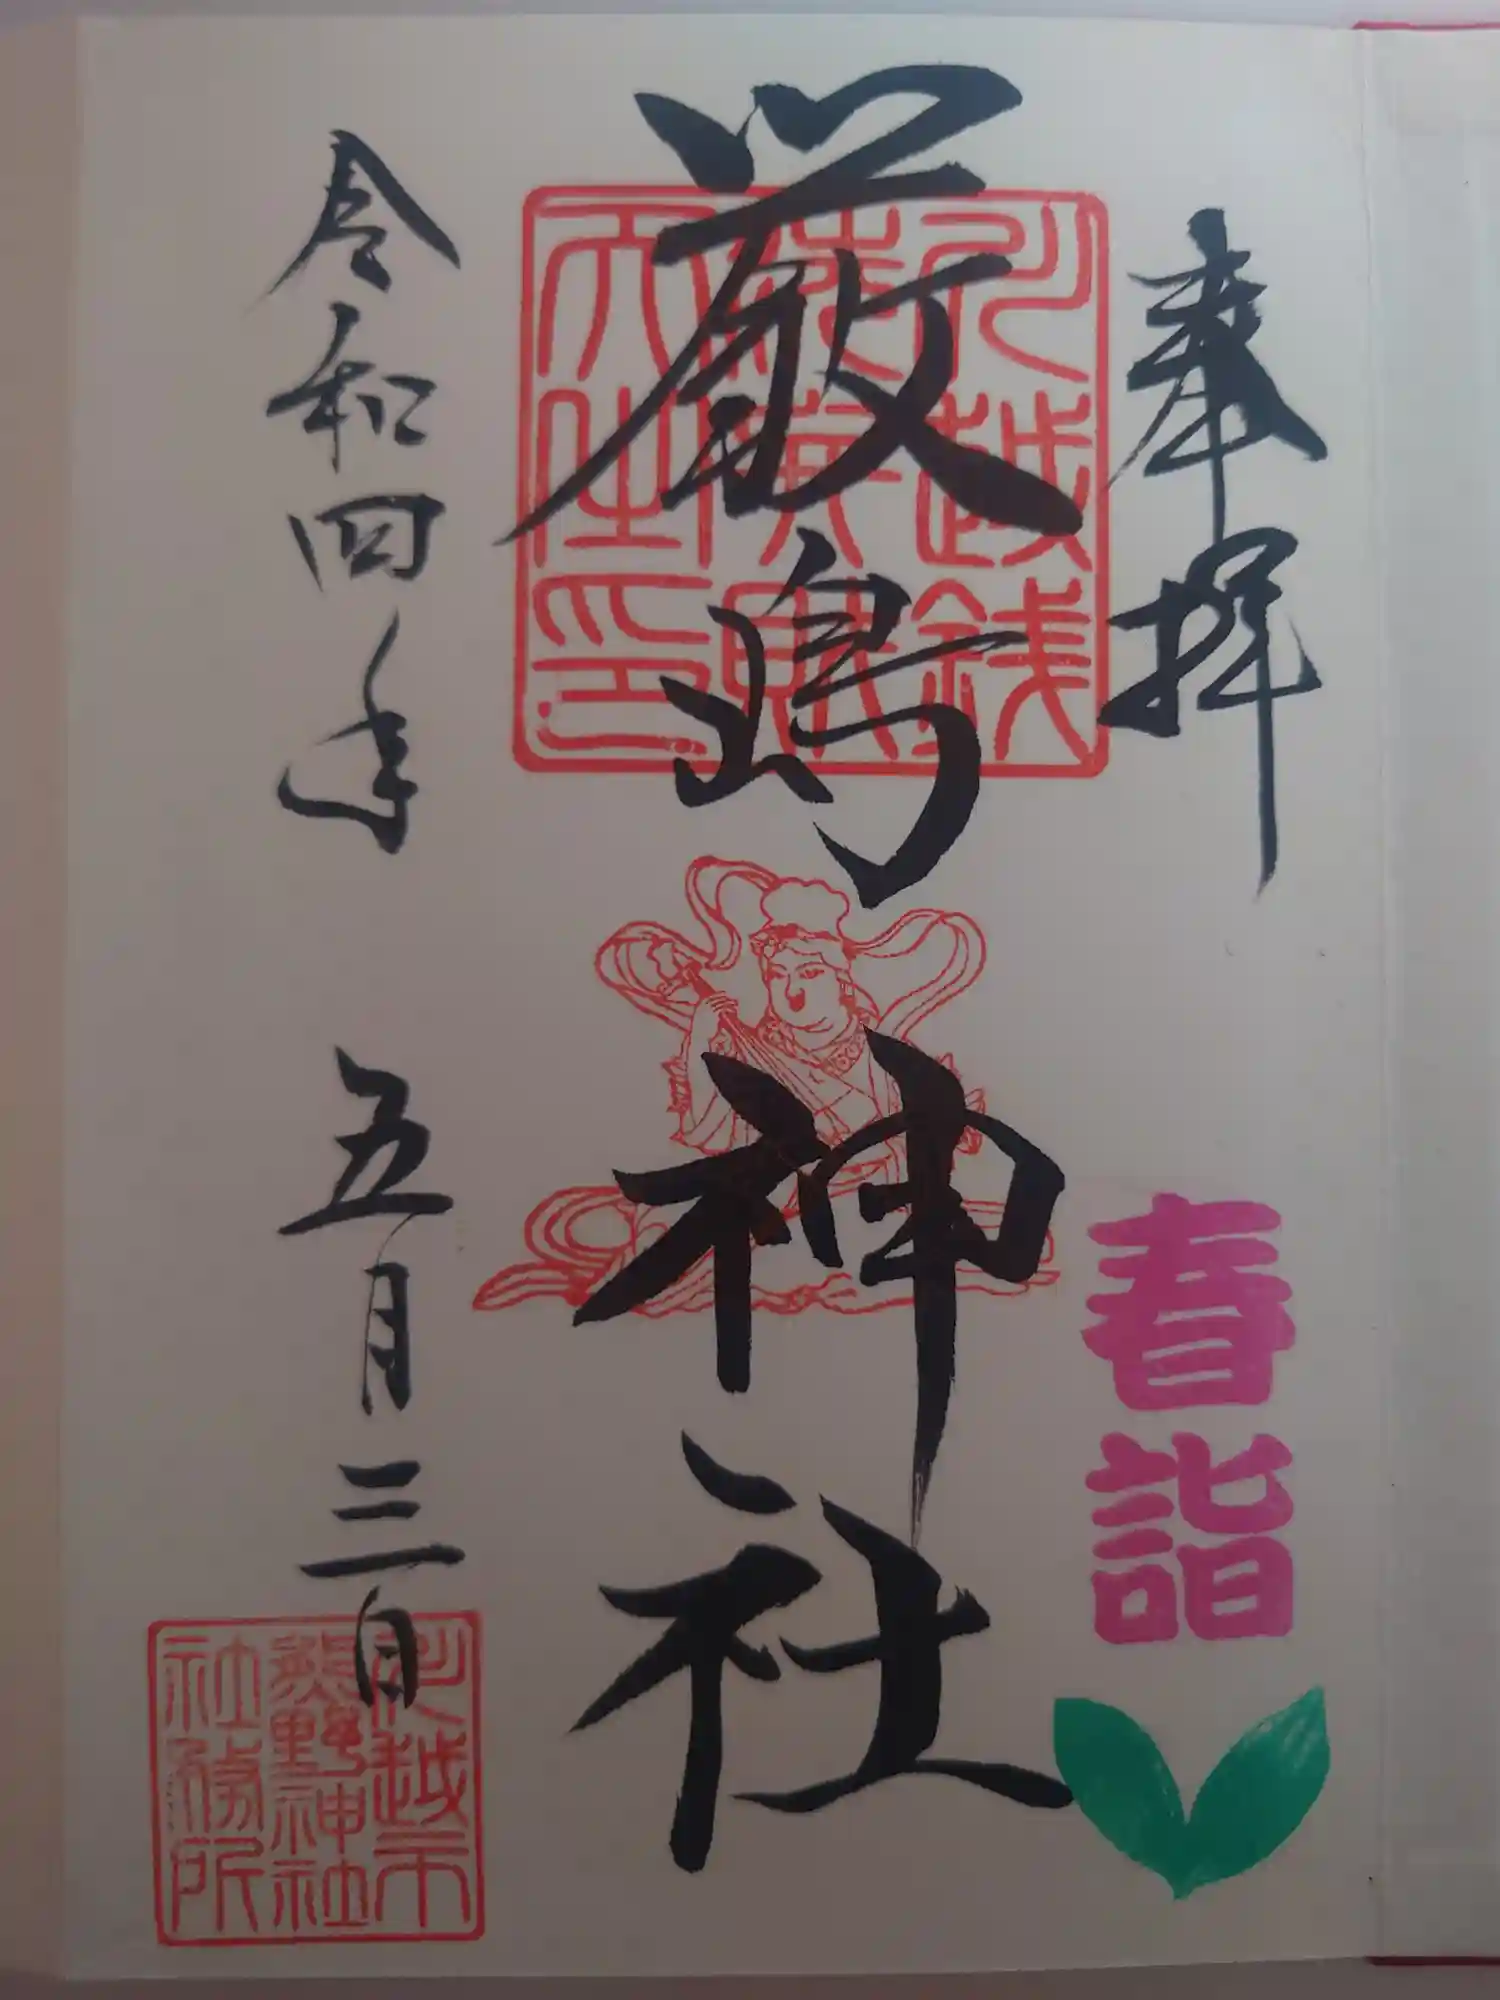 奉拝
春詣
厳島神社
川越銭
洗弁財
天之印
令和四年 五月三日
川越市
熊野神社
社務所